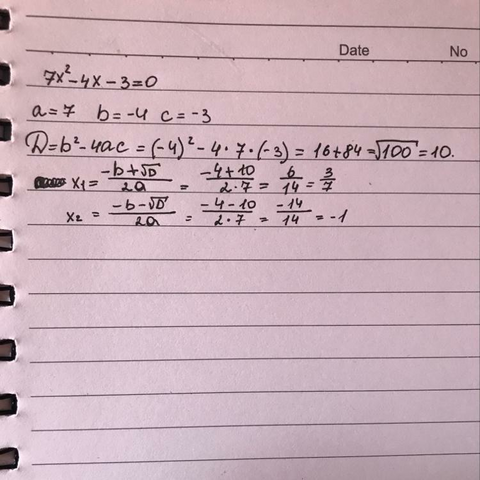 Date No
7x²-4x-3=0
a=7 b=-4 c=-3
D=b²-4ac=(-4)²-4·7·(-3)=16+84=√100=10.
x₁=(-b+√D)/2a=(-4+10)/2·7=6/14=3/7
x₂=(-b-√D)/2a=(-4-10)/2·7=-14/14=-1